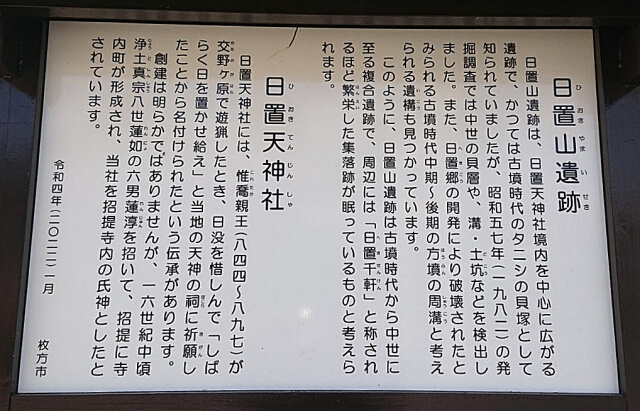 日置山遺跡
日置山遺跡は、日置天神社境内を中心に広がる
遺跡で、かつては古墳時代のタニシの貝塚として
知られていましたが、昭和五七年（一九八二）の発
掘調査では中世の貝層や、溝・土坑などを検出し
ました。また、日置郷の開発により破壊されたと
みられる古墳時代中期〜後期の方墳の周溝と考え
られる遺構も見つかっています。
このように、日置山遺跡は古墳時代から中世に
至る複合遺跡で、周辺には「日置千軒」と称され
るほど繁栄した集落跡が眠っているものと考えら
れます。
日置天神社
日置天神社には、惟喬親王（八四四〜八九七）が
交野ヶ原で遊猟したとき、日没を惜しんで「しば
らく日を置かせ給え」と当地の天神の祠に祈願し
たことから名付けられたという伝承があります。
創建は明らかではありませんが、一六世紀中頃
浄土真宗八世蓮如の六男蓮淳を招いて、招提に寺
内町が形成され、当社を招提寺内の氏神としたと
されています。
令和四年（二〇二二）一月
枚方市